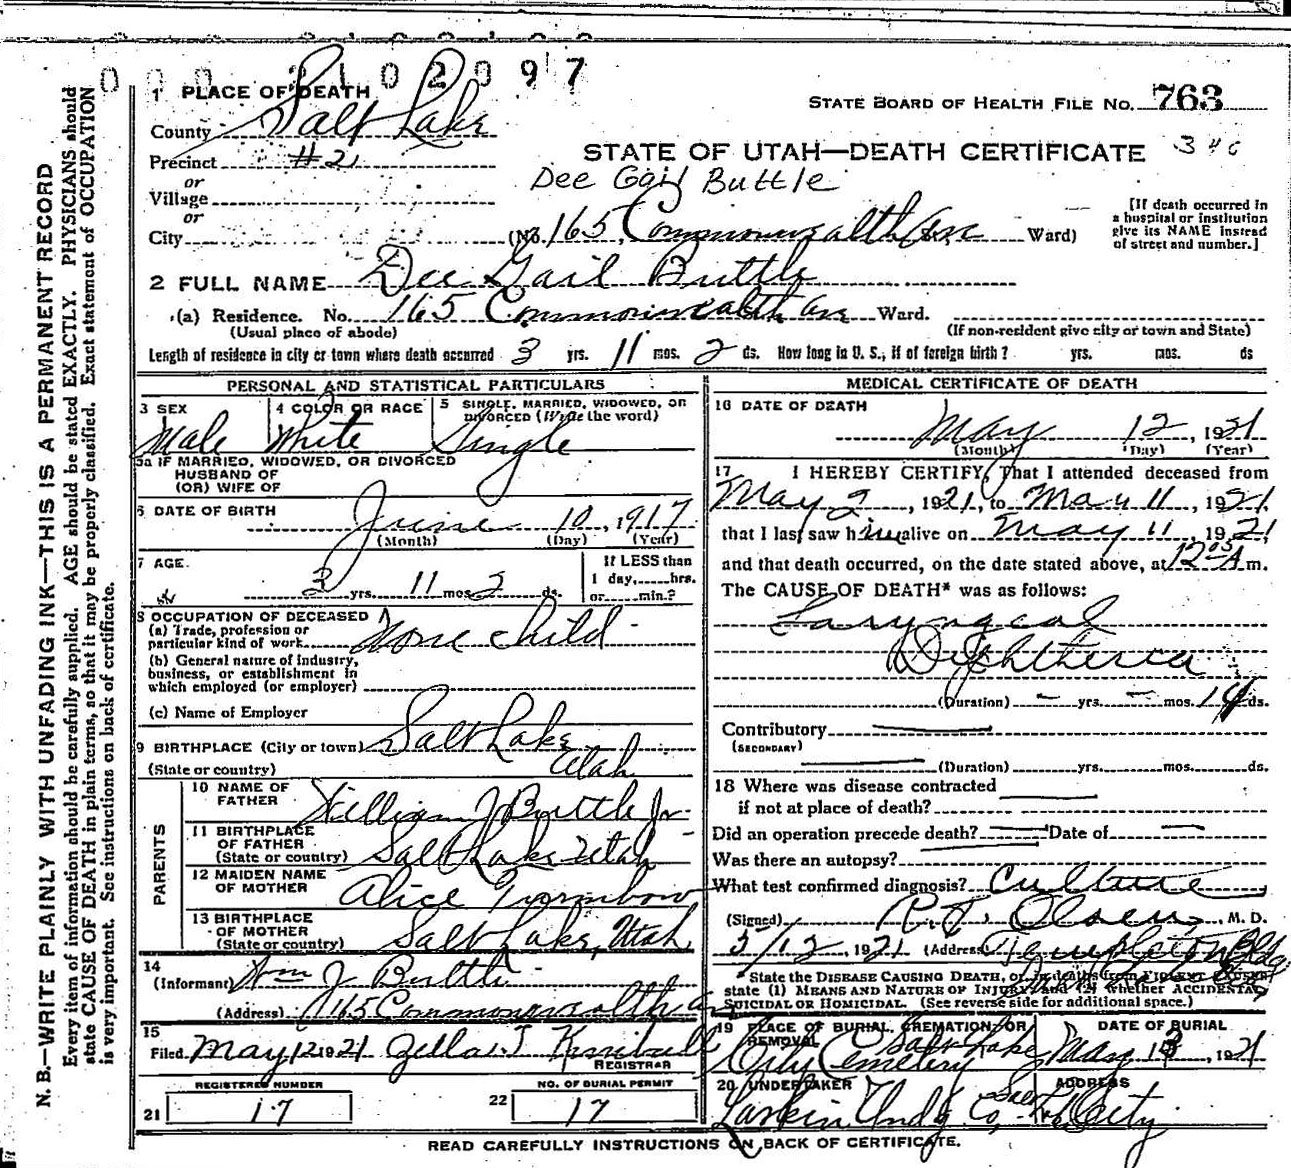 0 0 0 2 1 0 2 0 9 7
1 PLACE OF DEATH
STATE BOARD OF HEALTH FILE NO. 763
County Salt Lake
340
Precinct #2
STATE OF UTAH—DEATH CERTIFICATE
or
Dee Gail Buttle
Village
or
City (No. 165 Commonwealth Ave Ward)
[If death occurred in
a hospital or institution
give its NAME instead
of street and number.]
2 FULL NAME Dee Gail Buttle
(a) Residence. No. 165 Commonwealth Ave Ward.
(Usual place of abode) (If non-resident give city or town and State)
Length of residence in city or town where death occurred 3 yrs. 11 mos. 2 ds. How long in U. S., if of foreign birth? yrs. mos. ds
PERSONAL AND STATISTICAL PARTICULARS
3 SEX 4 COLOR OR RACE 5 SINGLE, MARRIED, WIDOWED, OR
DIVORCED (Write the word)
Male White Single
5a IF MARRIED, WIDOWED, OR DIVORCED
HUSBAND OF
(OR) WIFE OF
6 DATE OF BIRTH June 10, 1917
(Month) (Day) (Year)
7 AGE If LESS than
3 yrs. 11 mos. 2 ds. 1 day, hrs.
or min.?
8 OCCUPATION OF DECEASED
(a) Trade, profession or
particular kind of work None child
(b) General nature of industry,
business, or establishment in
which employed (or employer)
(c) Name of Employer
9 BIRTHPLACE (City or town) Salt Lake
(State or country) Utah
PARENTS
10 NAME OF
FATHER William J Buttle Jr
11 BIRTHPLACE
OF FATHER
(State or country) Salt Lake Utah
12 MAIDEN NAME
OF MOTHER Alice
13 BIRTHPLACE
OF MOTHER
(State or country) Salt Lake, Utah
14
(Informant) Wm J Buttle
(Address) 165 Commonwealth
15
Filed May 12 1921 Zella J Kimball
REGISTRAR
REGISTERED NUMBER NO. OF BURIAL PERMIT
21 17 22 17
MEDICAL CERTIFICATE OF DEATH
16 DATE OF DEATH
May 12, 1921
(Month) (Day) (Year)
17 I HEREBY CERTIFY, That I attended deceased from
May 2, 1921, to May 11, 1921,
that I last saw him alive on May 11, 1921,
and that death occurred, on the date stated above, at 12 05 A m.
The CAUSE OF DEATH* was as follows:
Laryngeal
Diphtheria
(Duration) – yrs. – mos. 14 ds.
Contributory
(SECONDARY)
(Duration) yrs. mos. ds.
18 Where was disease contracted
if not at place of death?
Did an operation precede death? Date of
Was there an autopsy?
What test confirmed diagnosis? Culture
(Signed) R. J. Olsen, M. D.
5/12, 1921 (Address) Templeton Bldg
State the DISEASE CAUSING DEATH, or, in deaths from VIOLENT CAUSES,
state (1) MEANS AND NATURE OF INJURY; and (2) whether ACCIDENTAL,
SUICIDAL OR HOMICIDAL. (See reverse side for additional space.)
19 PLACE OF BURIAL, CREMATION, OR
REMOVAL DATE OF BURIAL
City Cemetery Salt Lake May 13, 1921
20 UNDERTAKER ADDRESS
Larkin Und. Co. Salt Lake City
READ CAREFULLY INSTRUCTIONS ON BACK OF CERTIFICATE.
N. B.—WRITE PLAINLY WITH UNFADING INK—THIS IS A PERMANENT RECORD
Every item of information should be carefully supplied. AGE should be stated EXACTLY. PHYSICIANS should
state CAUSE OF DEATH in plain terms, so that it may be properly classified. Exact statement of OCCUPATION
is very important. See instructions on back of certificate.